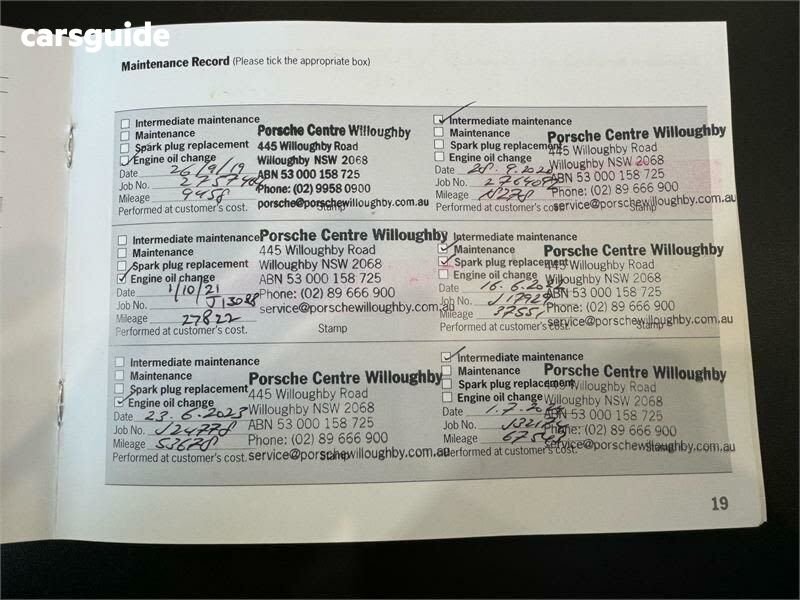 carsguide
Maintenance Record (Please tick the appropriate box)
Intermediate maintenance
Maintenance
Spark plug replacement
Engine oil change
Date 26/9/19
Job No.
Mileage 9958
Performed at customer's cost.
Stamp
Porsche Centre Willoughby
445 Willoughby Road
Willoughby NSW 2068
ABN 53 000 158 725
Phone: (02) 9958 0900
porsche@porschewilloughby.com.au
Intermediate maintenance
Maintenance
Spark plug replacement
Engine oil change
Date 28.9.2020
Job No.
Mileage
Performed at customer's cost.
Stamp
Porsche Centre Willoughby
445 Willoughby Road
Willoughby NSW 2068
ABN 53 000 158 725
Phone: (02) 89 666 900
service@porschewilloughby.com.au
Intermediate maintenance
Maintenance
Spark plug replacement
Engine oil change
Date 1/10/21
Job No. J13028
Mileage 27822
Performed at customer's cost.
Stamp
Porsche Centre Willoughby
445 Willoughby Road
Willoughby NSW 2068
ABN 53 000 158 725
Phone: (02) 89 666 900
service@porschewilloughby.com.au
Intermediate maintenance
Maintenance
Spark plug replacement
Engine oil change
Date 16.6.
Job No.
Mileage 37551
Performed at customer's cost.
Stamp
Porsche Centre Willoughby
445 Willoughby Road
Willoughby NSW 2068
ABN 53 000 158 725
Phone: (02) 89 666 900
service@porschewilloughby.com.au
Intermediate maintenance
Maintenance
Spark plug replacement
Engine oil change
Date 23.6.2023
Job No. J24778
Mileage 53678
Performed at customer's cost.
Stamp
Porsche Centre Willoughby
445 Willoughby Road
Willoughby NSW 2068
ABN 53 000 158 725
Phone: (02) 89 666 900
service@porschewilloughby.com.au
Intermediate maintenance
Maintenance
Spark plug replacement
Engine oil change
Date 1.7.
Job No.
Mileage
Performed at customer's cost.
Stamp
Porsche Centre Willoughby
445 Willoughby Road
Willoughby NSW 2068
ABN 53 000 158 725
Phone: (02) 89 666 900
service@porschewilloughby.com.au
19